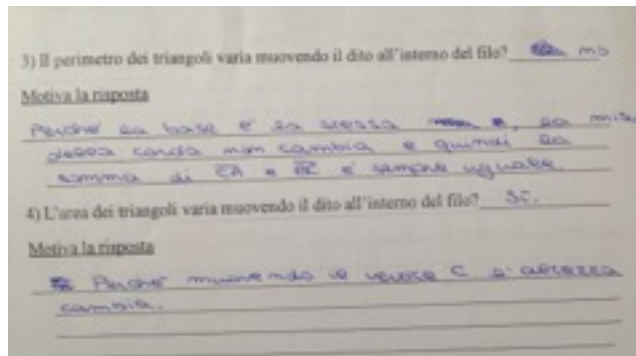 3) Il perimetro dei triangoli varia muovendo il dito all'interno del filo? no
Motiva la risposta
Perché la base è la stessa, la
della corda non cambia e quindi la
somma di CA e BC è sempre uguale.
4) L'area dei triangoli varia muovendo il dito all'interno del filo? Sì.
Motiva la risposta
Perché muovendo il vertice C l'altezza
cambia.